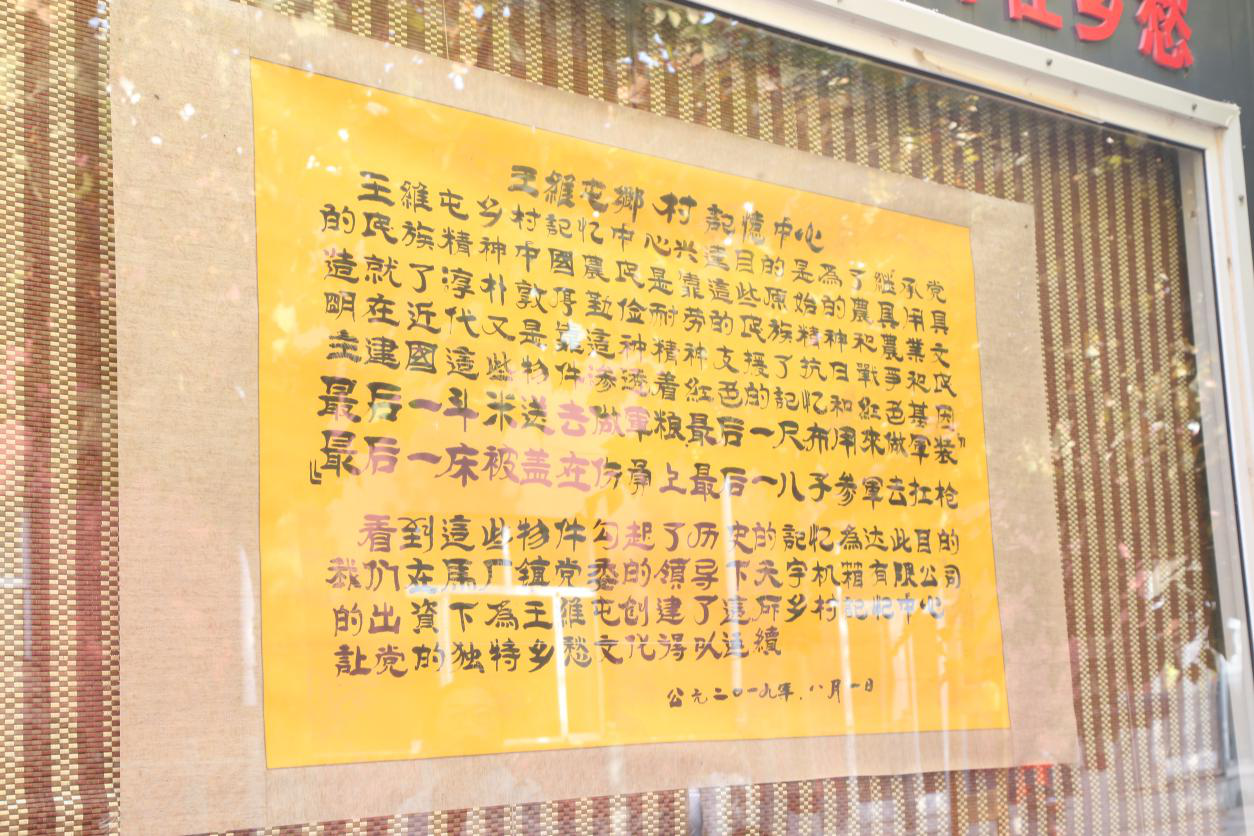 乡愁
王維屯鄉村記憶中心
王維屯乡村記忆中心兴建目的是為了継承党
的民族精神中國農民是靠這些原始的農具用具
造就了淳朴敦厚勤俭耐劳的民族精神和農業文
明在近代又是靠這种精神支援了抗日戰爭和民
主建國這些物件渗透着紅色的記忆和紅色基因
最后一斗米送去做軍粮最后一尺布用來做軍装”
最后一床被盖在伤員上最后一儿子参軍去扛枪
看到這些物件勾起了历史的記忆為达此目的
我们在馬厂鎮党委的領导下天宇机箱有限公司
的出資下為王維屯创建了這所乡村記忆中心
訨党的独特乡愁文化得以延續
公元二〇一九年.八月一日